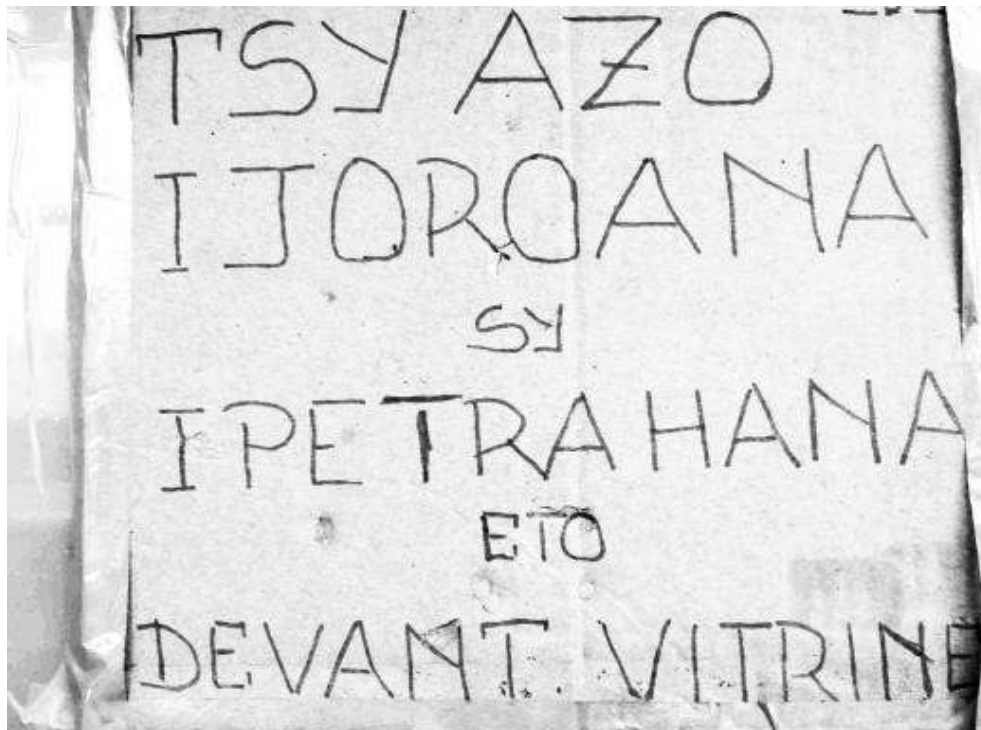 TSY AZO
IJOROANA
SY
IPETRAHANA
ETO
DEVANT VITRINE